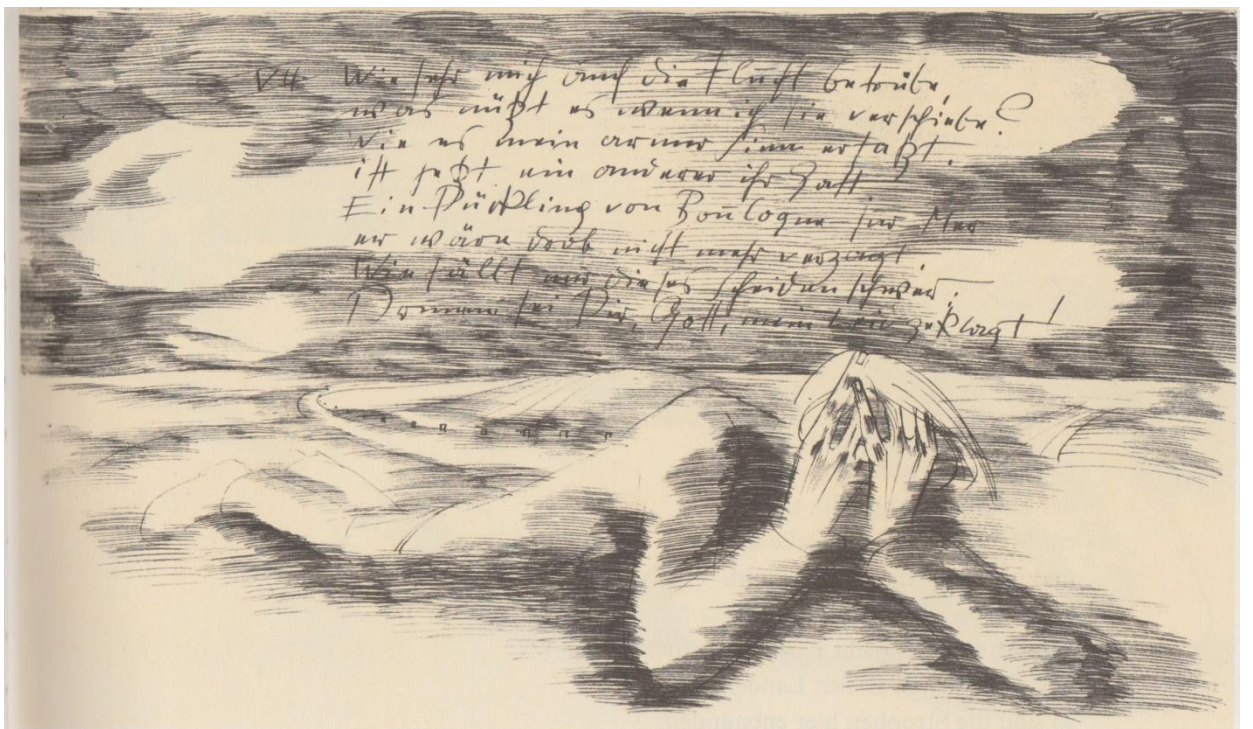 VII Wie sehr mich auch die Flucht betrübe,
was nützt es wenn ich sie verschiebe?
Wie es mein armer Sinn erfaßt.
ist jetzt ein anderer ihr Gast
Ein Bückling von Boulogne sur Mer
er wäre drob nicht mehr verzagt
Wie fällt mir dieses scheiden schwer;
Drum sei Dir, Gott, mein Leid geklagt!